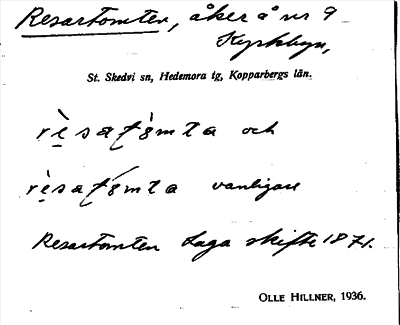 Resartomten, åker å nr 9
Kyrkbyn,
St. Skedvi sn, Hedemora tg, Kopparbergs län.
rè̤saṭòmta och
rè̤saṭómta vanligare
Resartomten Laga skifte 1871.
OLLE HILLNER, 1936.